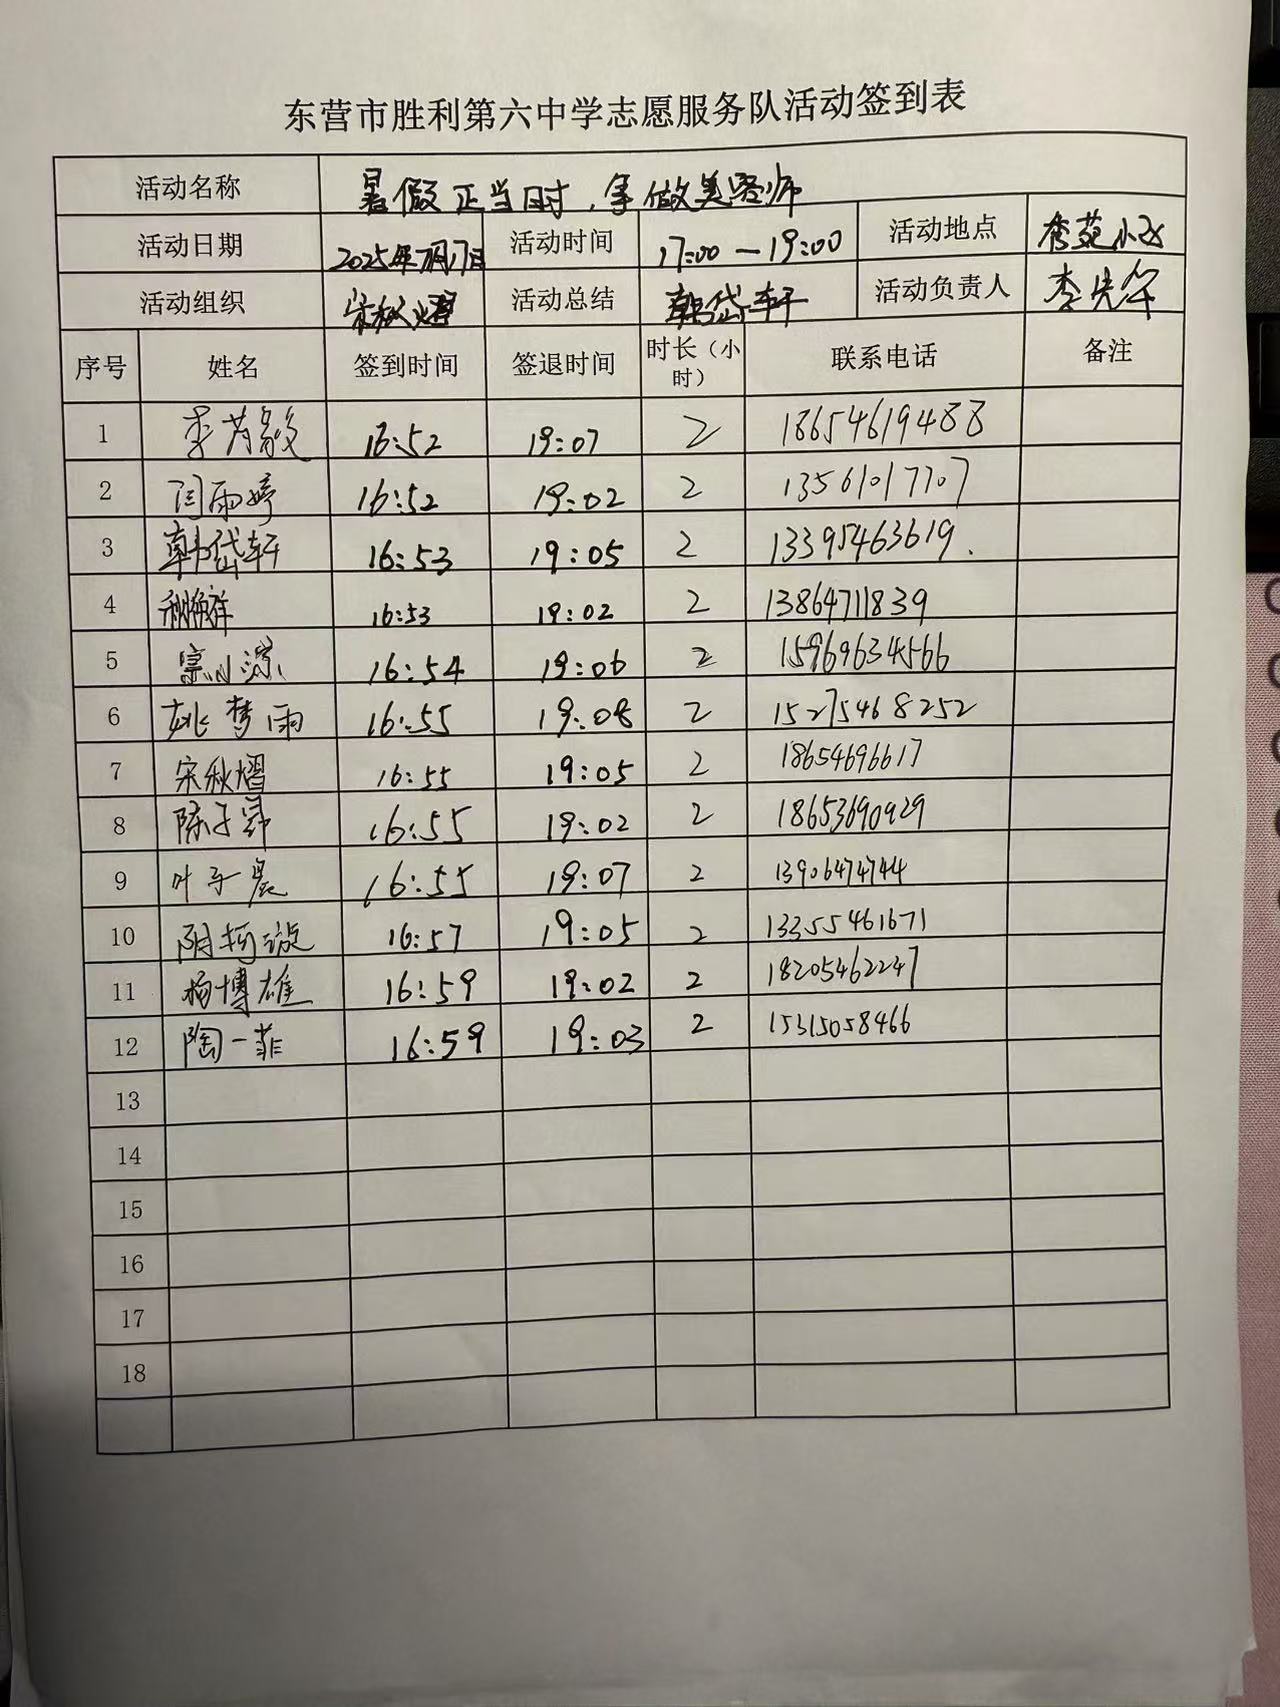 东营市胜利第六中学志愿服务队活动签到表
活动名称 暑假正当时，争做美容师
活动日期 2025年7月17日 活动时间 17:00—19:00 活动地点 秀苑小区
活动组织 宋秋熠 活动总结 韩岱轩 活动负责人 李先华
序号 姓名 签到时间 签退时间 时长（小时） 联系电话 备注
1 李芮毅 16:52 19:07 2 18654619488
2 闫雨婷 16:52 19:02 2 13561017707
3 韩岱轩 16:53 19:05 2 13395463619.
4 16:53 19:02 2 13864711839
5 16:54 19:06 2 15969634566
6 姚梦雨 16:55 19:08 2 15275468252
7 宋秋熠 16:55 19:05 2 18654696617
8 陈子昂 16:55 19:02 2 18653690929
9 叶子晨 16:55 19:07 2 13906474744
10 16:57 19:05 2 13355461671
11 杨博雄 16:59 19:02 2 18205462247
12 陶一菲 16:59 19:03 2 15315058466
13
14
15
16
17
18